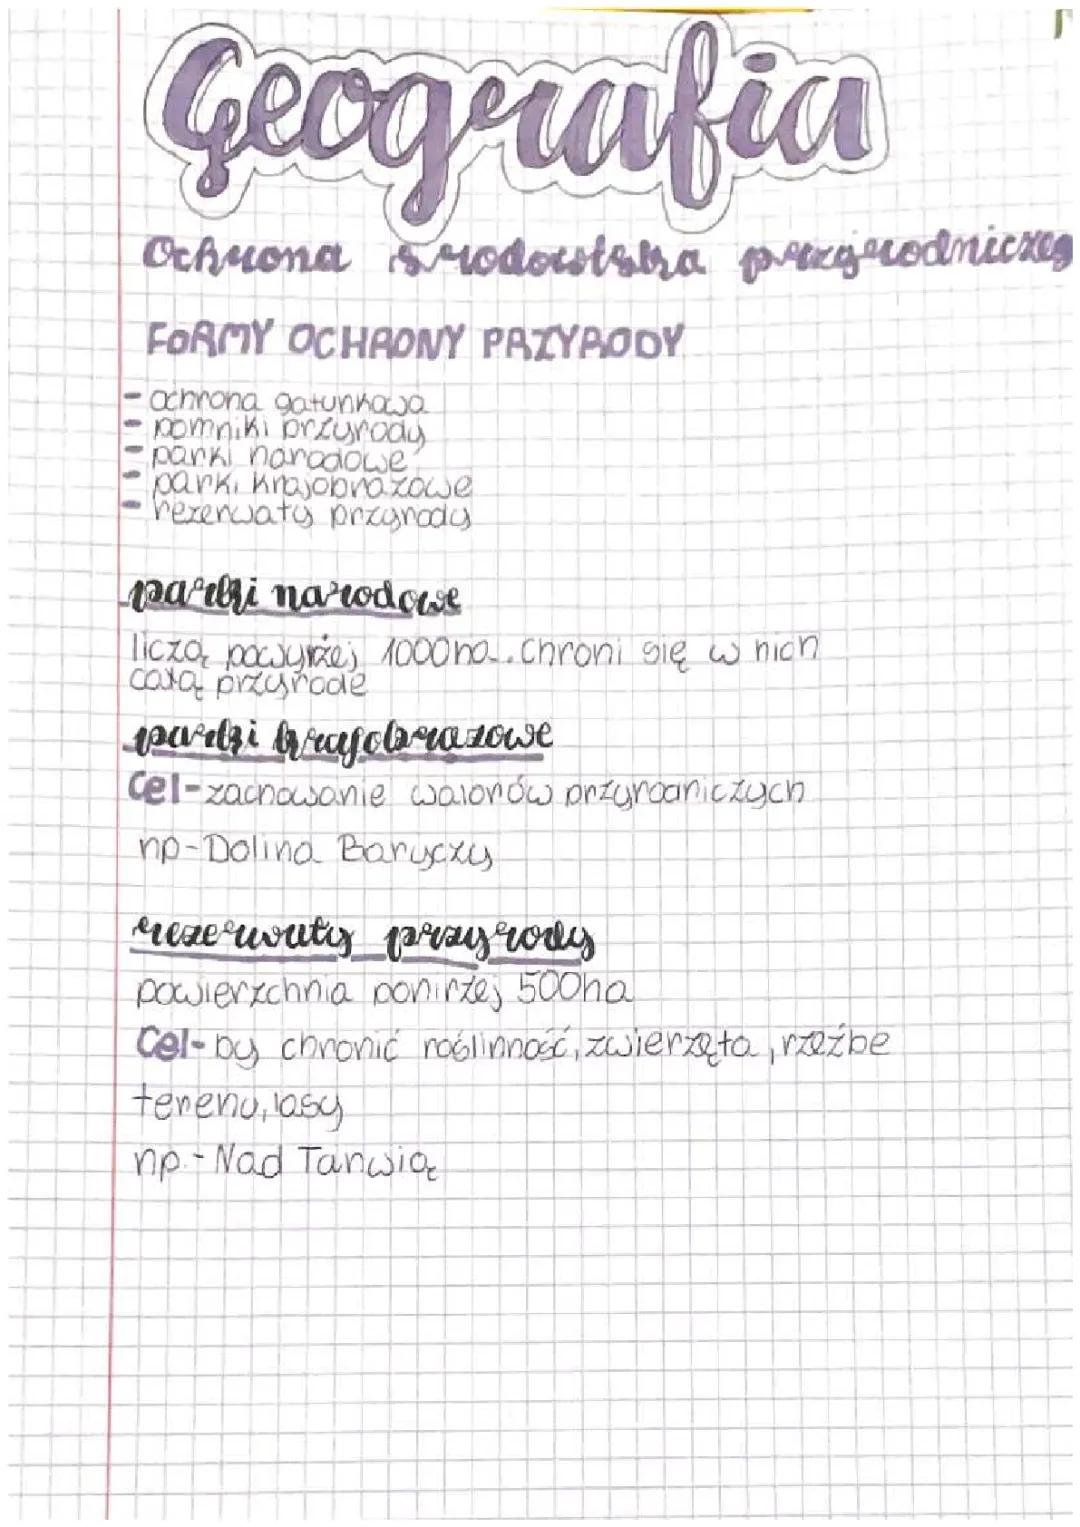 Geografia
Ochrona środowiska przyrodniczeg
FORMY OCHRONY PRZYRODY
- ochrona gatunkowa
- pomniki przyrody
- parki narodowe
- parki krajobrazowe
- rezerwaty przyrody
parki narodowe
liczą powyrzej 1000ha. Chroni się w nich
całą przyrode
parki krajobrazowe
Cel-zachowanie walorów przyrodniczych
np-Dolina Baryczy
rezerwaty przyrody
powierzchnia ponirzej 500ha
Cel-by chronić roślinność, zwierzęta, rzeźbe
terenu, lasy
np.-Nad Tanwią